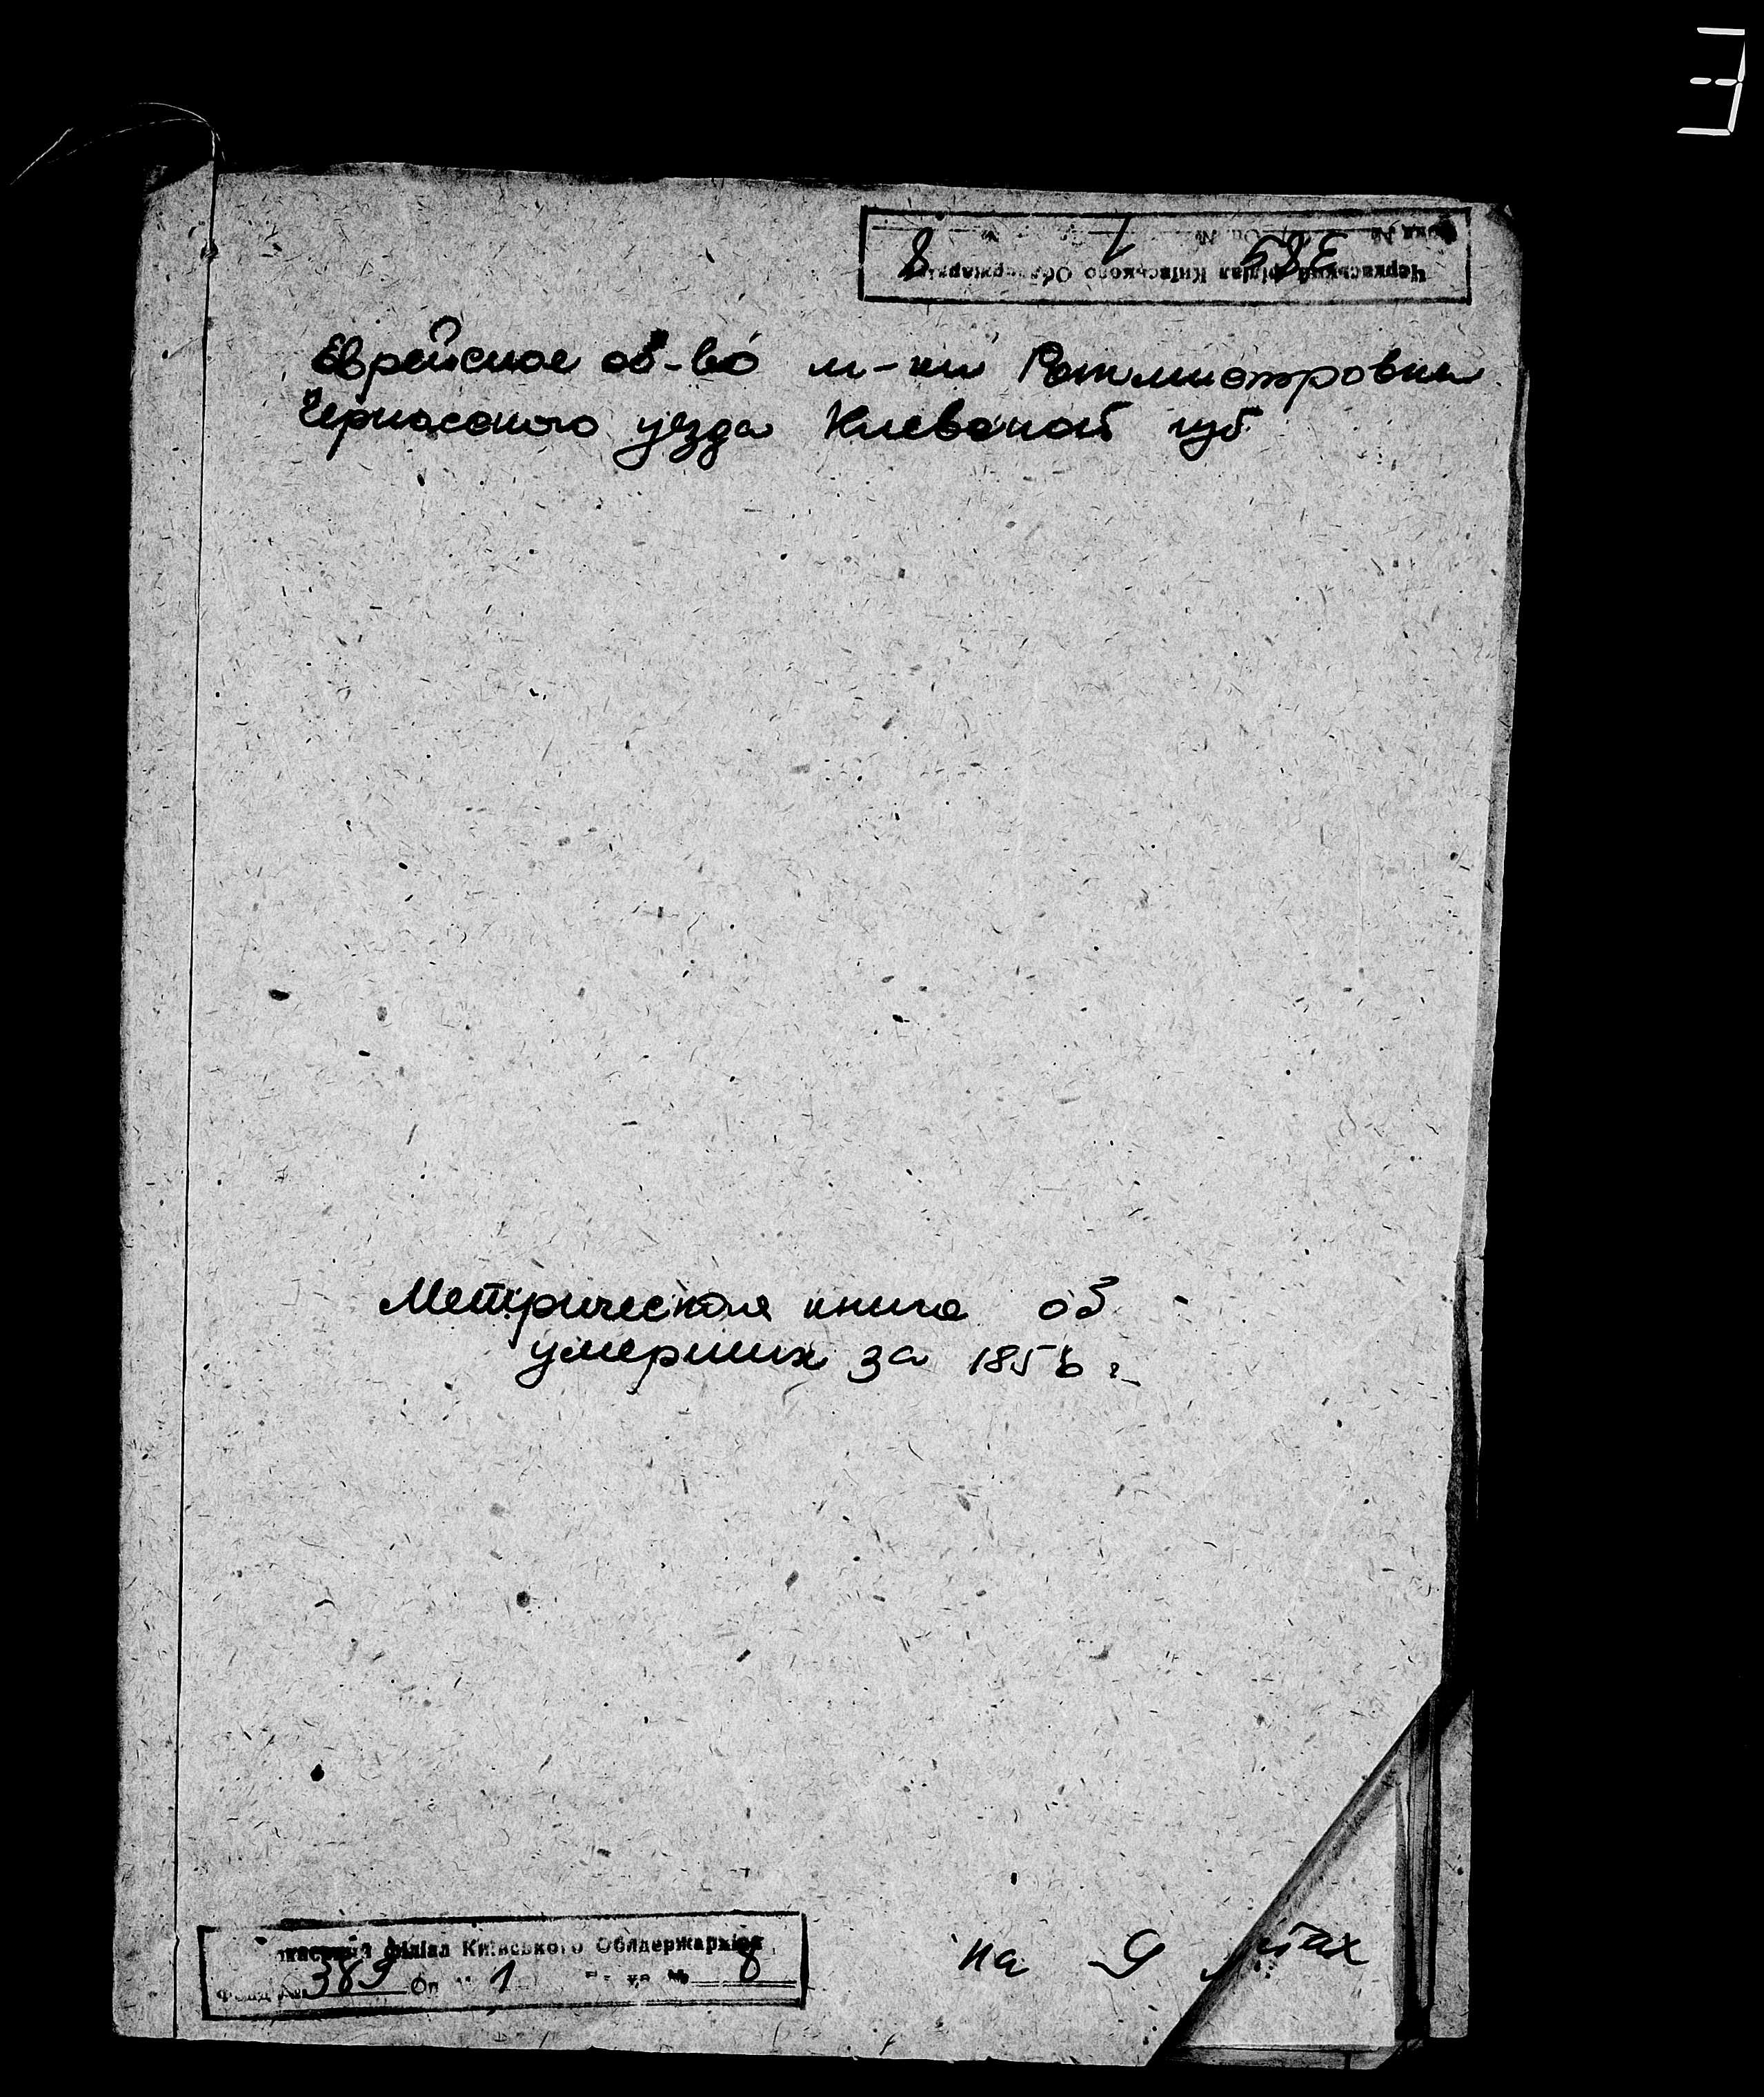 Черкаський філіал Київського Облдержархіва
Фонд № 389 Оп. № 1 № 8
Еврейское об-во м-ки Ротмистровки
Черкасского уезда Киевской губ
Метрическая книга об
умерших за 1856 г.
філіал Київського Облдержархіва
Фонд № 389 Оп № 1 № 8
на 9